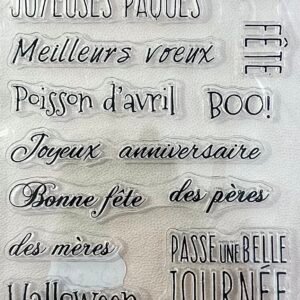 JOYEUSES PÂQUES
FÊTE
Meilleurs voeux
Poisson d'avril
BOO!
Joyeux anniversaire
Bonne fête
des pères
des mères
PASSE UNE BELLE
JOURNÉE
Halloween